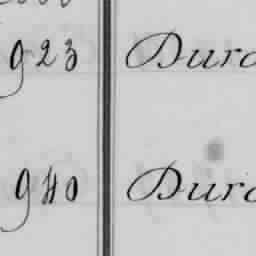 923 Dura
940 Dura